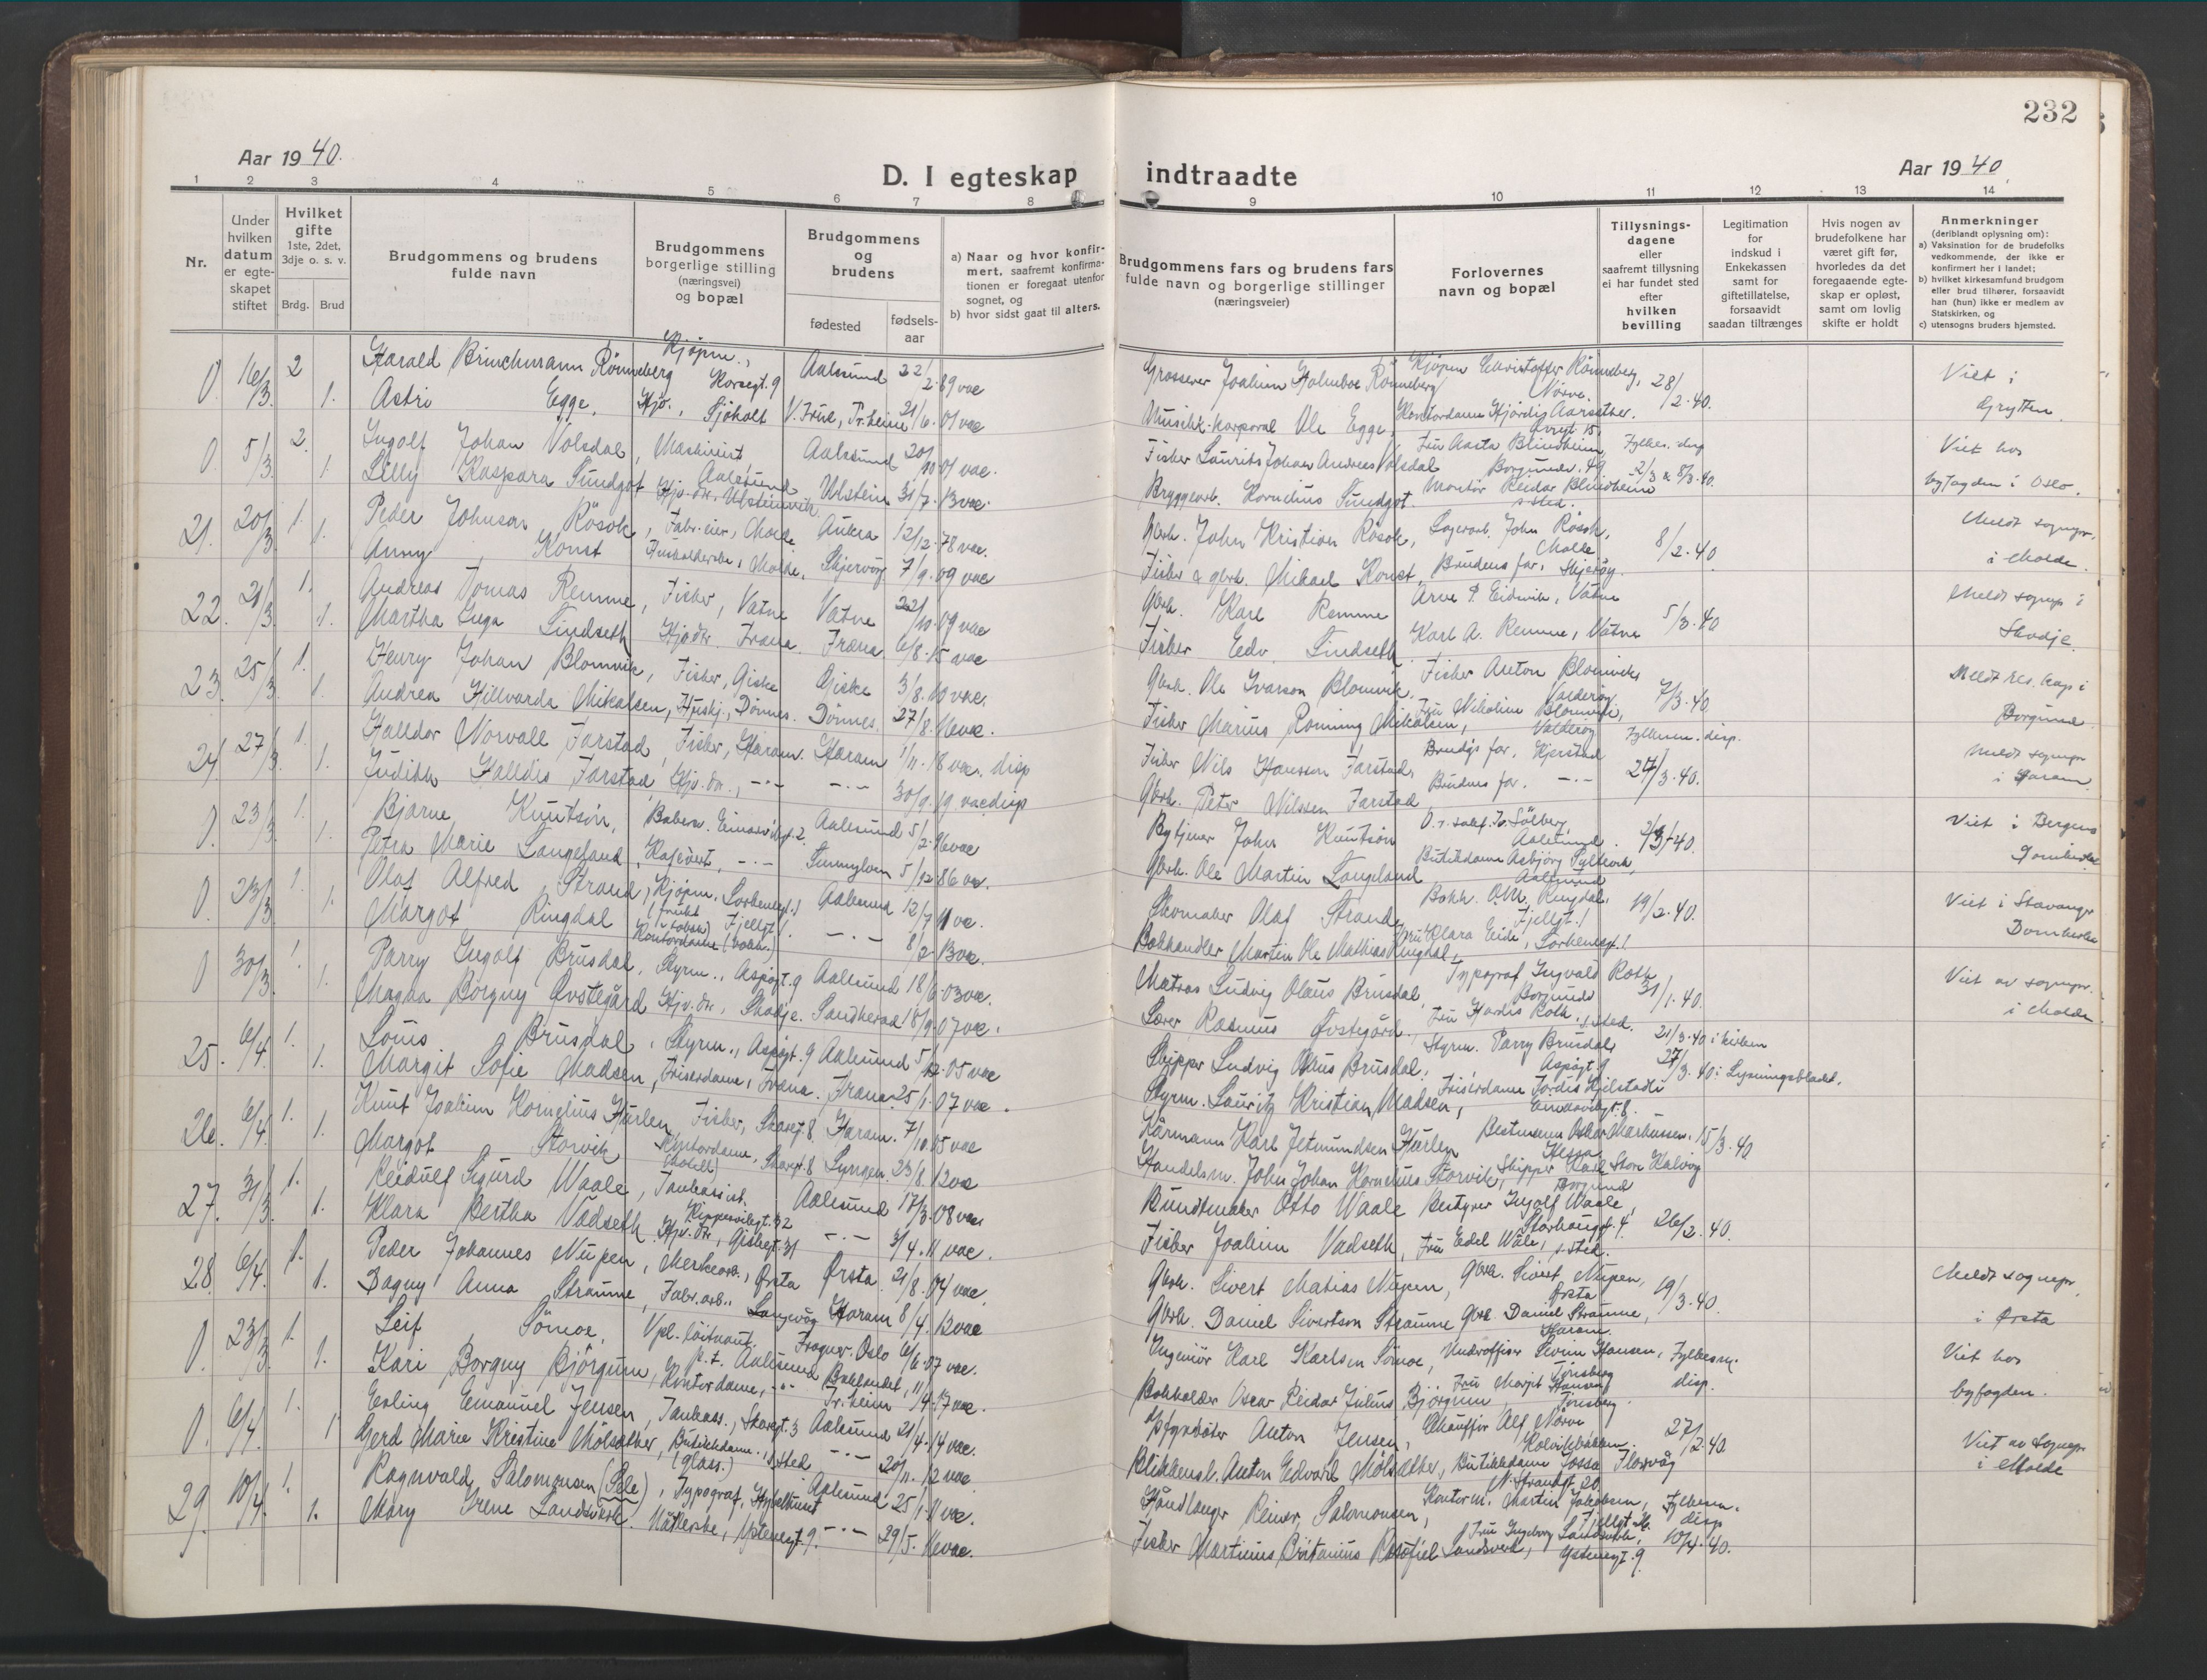 232
Aar 1940.
D. I egteskap indtraadte
Aar 1940.
1 2 3 4 5 6 7 8 9 10 11 12 13 14
Nr.
Under hvilken datum er egteskapet stiftet
Hvilket gifte 1ste, 2det, 3dje o. s. v.
Brdg. Brud
Brudgommens og brudens fulde navn
Brudgommens borgerlige stilling (næringsvei) og bopæl
Brudgommens og brudens
fødested
fødselsaar
a) Naar og hvor konfirmert, saafremt konfirmationen er foregaat utenfor sognet, og
b) hvor sidst gaat til alters.
Brudgommens fars og brudens fars fulde navn og borgerlige stillinger (næringsveier)
Forlovernes navn og bopæl
Tillysningsdagene eller saafremt tillysning ei har fundet sted efter hvilken bevilling
Legitimation for indskud i Enkekassen samt for giftetillatelse, forsaavidt saadan tiltrænges
Hvis nogen av brudefolkene har været gift før, hvorledes da det foregaaende egteskap er opløst, samt om lovlig skifte er holdt
Anmerkninger (deriblandt oplysning om):
a) Vaksination for de brudefolks vedkommende, der ikke er konfirmert her i landet;
b) hvilket kirkesamfund brudgom eller brud tilhører, forsaavidt han (hun) ikke er medlem av Statskirken, og
c) utensogns bruders hjemsted.
0 16/3. 2 Harald Brinchmann Rönneberg Kjøpm., Korsegt. 9 Aalesund 22/2. 89 vac Grosserer Joakim Holmboe Rönneberg Kjøpm Christoffer Rönneberg, Nörve. 28/2. 40. Viet i
1. Astri Egge, Hjv., Sjöholt V. Frue, Tr.heim 21/6. 01 vac Musikk-korporal Ole Egge, Kontordame Hjördis Aarsether. Grytten.
0. 5/3. 2. Ingolf Johan Volsdal, Maskinist Aalesund Aalesund 20/10 01 vac. Fisker Laurits Johan Andreas Volsdal Fru Aasta Blindheim, Borgundv. 49 Fylkes. disp Viet hos
1. Lilly Kaspara Sundgot Hjv. dr. Ulsteinvik Ulstein 31/7. 13 vac. Bryggearb. Kornelius Sundgot. Montör Reidar Blindheim s. sted. 2/3 & 8/3. 40. byfogden i Oslo.
21. 20/3 1. Peder Johnsen Rösok, Fabr.eier, Molde Aukra 12/12. 78 vac. Gbrk. John Kristian Rösok, Lagerarb. John Rösok, Molde 8/2. 40. Meldt sognepr.
1. Anny Konst Husholderske, Molde. Skjervøy 7/9. 09 vac Fisker & gbrk. Mikael Konst, Brudens far, Skjervøy. i Molde.
22. 21/3. 1. Andreas Tomas Remme, Fisker, Vatne Vatne 22/10. 09 vac Gbrk. Karl Remme Arve P. Eidsvik, Vatne 5/3. 40 Meldt sognep i
1. Martha Inga Lindseth Hjv.dr. Fræna. Fræna 6/8. 15 vac Fisker Edv. Lindseth Karl A. Remme, Vatne Skodje.
23. 25/3. 1. Henry Johan Blomvik, Fisker, Giske Giske 3/8. 10 vac. Gbrk. Ole Ivarson Blomvik. Fisker Anton Blomvik, Valderöy 7/3. 40 Meldt res. kap i
1. Andrea Hillvarda Mikalsen, Huskj., Dönnes. Dönnes. 27/8. 16 vac. Fisker Marius Ronning Mikalsen, Fru Nikoline Blomvik, Valderöy Borgund
24 27/3. 1. Halldor Norvall Farstad, Fisker, Haram. Haram 1/11. 18 vac. disp Fisker Nils Hansson Farstad, Brudg's far, Kjerstad Fylkesm. disp. 27/3. 40. Meldt sognepr
1. Judith Halldis Farstad, Hjv. dr., -"- -"- 30/9. 19 vac disp Gbrk. Peter Nilssen Farstad Brudens far. -"- i Haram
0 23/3 1. Bjarne Knutsön, Baker. Einarvikgt. 2. Aalesund 5/2. 16 vac Bytjener John Knutsön Aalesund. 2/3-40. Viet i Bergens
1. Petra Marie Langeland, Kafévert, -"- Sunnylven 5/12. 86 vac. Gbrk. Ole Martin Langeland Butikkdame Asbjörg Syltevik, Aalesund Domkirke
0. 23/3 1. Olaf Alfred Strand, Kjøpm. (frukt & tobak) Aalesund 12/7 11 vac. Skomaker Olaf Strand, Bokh. O.M. Ringdal, Fjellgt. 1 19/2. 40. Viet i Stavanger
1. Margot Ringdal Kontordame (bokh.) Fjellgt 1. -"- 8/2. 13 vac. Bokhandler Martin Ole Mathias Ringdal, Fru Klara Eide, Domkirke
0 30/3. 1. Parry Ingolf Brusdal, Styrm., Aspøgt. 9 Aalesund 18/6. 03 vac. Matros Ludvig Olaus Brusdal, Typograf Ingvald Roth Borgund 31/1. 40. Viet av sognepr.
1. Magna Borgny Øvstegård Hjv. dr., Skodje. Sandherad 18/9. 07 vac. Lærer Rasmus Øvstegård. Fru Hardis Roth, s. sted. i Molde
25. 6/4. 1. Louis Brusdal, Styrm., Aspøgt. 9 Aalesund 5/12. 05 vac Skipper Ludvig Olaus Brusdal, Styrm. Parry Brusdal, Aspøgt. 9 21/3. 40 i kirken
1. Margit Sofie Madsen, Friserdame, Fræna. Fræna 25/1. 07 vac. Styrm. Lauritz Kristian Madsen, Friserdame Jordis Hjelstadli 27/3. 40 i Lysningsbladet.
26. 6/4. 1. Knut Joakim Kornelius Hurlen Fisker, Skaregt. 8. Haram. 7/10. 05 vac Kårmann Karl Jetmundsen Hurlen Bestmann Oskar Markussen. Hessa 15/3. 40
1. Margot Storvik Kontordame (hotell), Skaregt. 8 Lyngen 23/8. 12 vac Handelsm. John Johan Kornelius Storvik, Skipper Karl Store Kalvøy Borgund
27. 31/3. 1. Reidulf Sigurd Waale, Tankass ist. Keiservikgt. 32 Aalesund 17/3. 08 vac Buntmaker Otto Waale Bestyrer Ingolf Waale, Storhauggt. 4. 26/2. 40.
1. Klara Bertha Vadseth Hjv. dr, Giskegt. 31 -"- 3/4. 11 vac. Fisker Joakim Vadseth, Fru Edel Wåle, s. sted.
28. 6/4. 1. Peder Johannes Nupen, Meieriarb., Ørsta Ørsta 21/8. 04 vac. Gbrk. Sivert Matias Nupen, Gbrk. Sivert Nupen, Ørsta 19/3. 40. Meldt sognepr
1. Dagny Anna Straume, Fabr.arb., Langevåg Haram 8/4. 12 vac Gbrk. Daniel Sivertson Straume Gbrk. Daniel Straume, Haram. i Ørsta
0. 23/3. 1. Leif Sömoe, Vpl. löitnant p. t. Aalesund Frogner. Oslo 6/6. 07 vac. Ingeniör Karl Karlsen Sömoe, Underoffiser Hansen, Tönsberg Fylkesm. Viet hos
1. Kari Borgny Björgum, Kontordame, -"- Baklandet, Tr.heim 11/4. 17 vac. Bokholder Oscar Reidar Julius Björgum, Fru Margit Hansen Tönsberg. disp. byfogden.
0. 6/4. 1. Erling Emanuel Jensen, Tankass., Skaregt. 3 Aalesund 21/4. 14 vac. Fyrböter Anton Jensen, Chauffør Alf Nörve 27/2. 40. Viet av sognepr
1 Gerd Marie Kristine Mölsæther, Butikkdame (glass.), s. sted -"- 20/11. 12 vac Blikkensl. Anton Edvard Mölsæther, Butikkdame Jossa Florvåg N. Strandgt. 20. i Molde
29. 10/4. 1. Ragnvald Salomonsen (Sele), Typograf, Aalesund 25/1. 11 vac. Håndlanger Reiner Salomonsen, Kontorm. Martin Jakobsen, Fjellgt Fylkesm. disp
1. Mary Irene Landsverk. Matlerske, Ystenesgt. 9. -"- 29/5. 16 vac. Fisker Martinus Britanius Rösöfiel Landsverk, Fru Ingeborg Landsverk, Ystenesgt. 9. 10/4. 40.